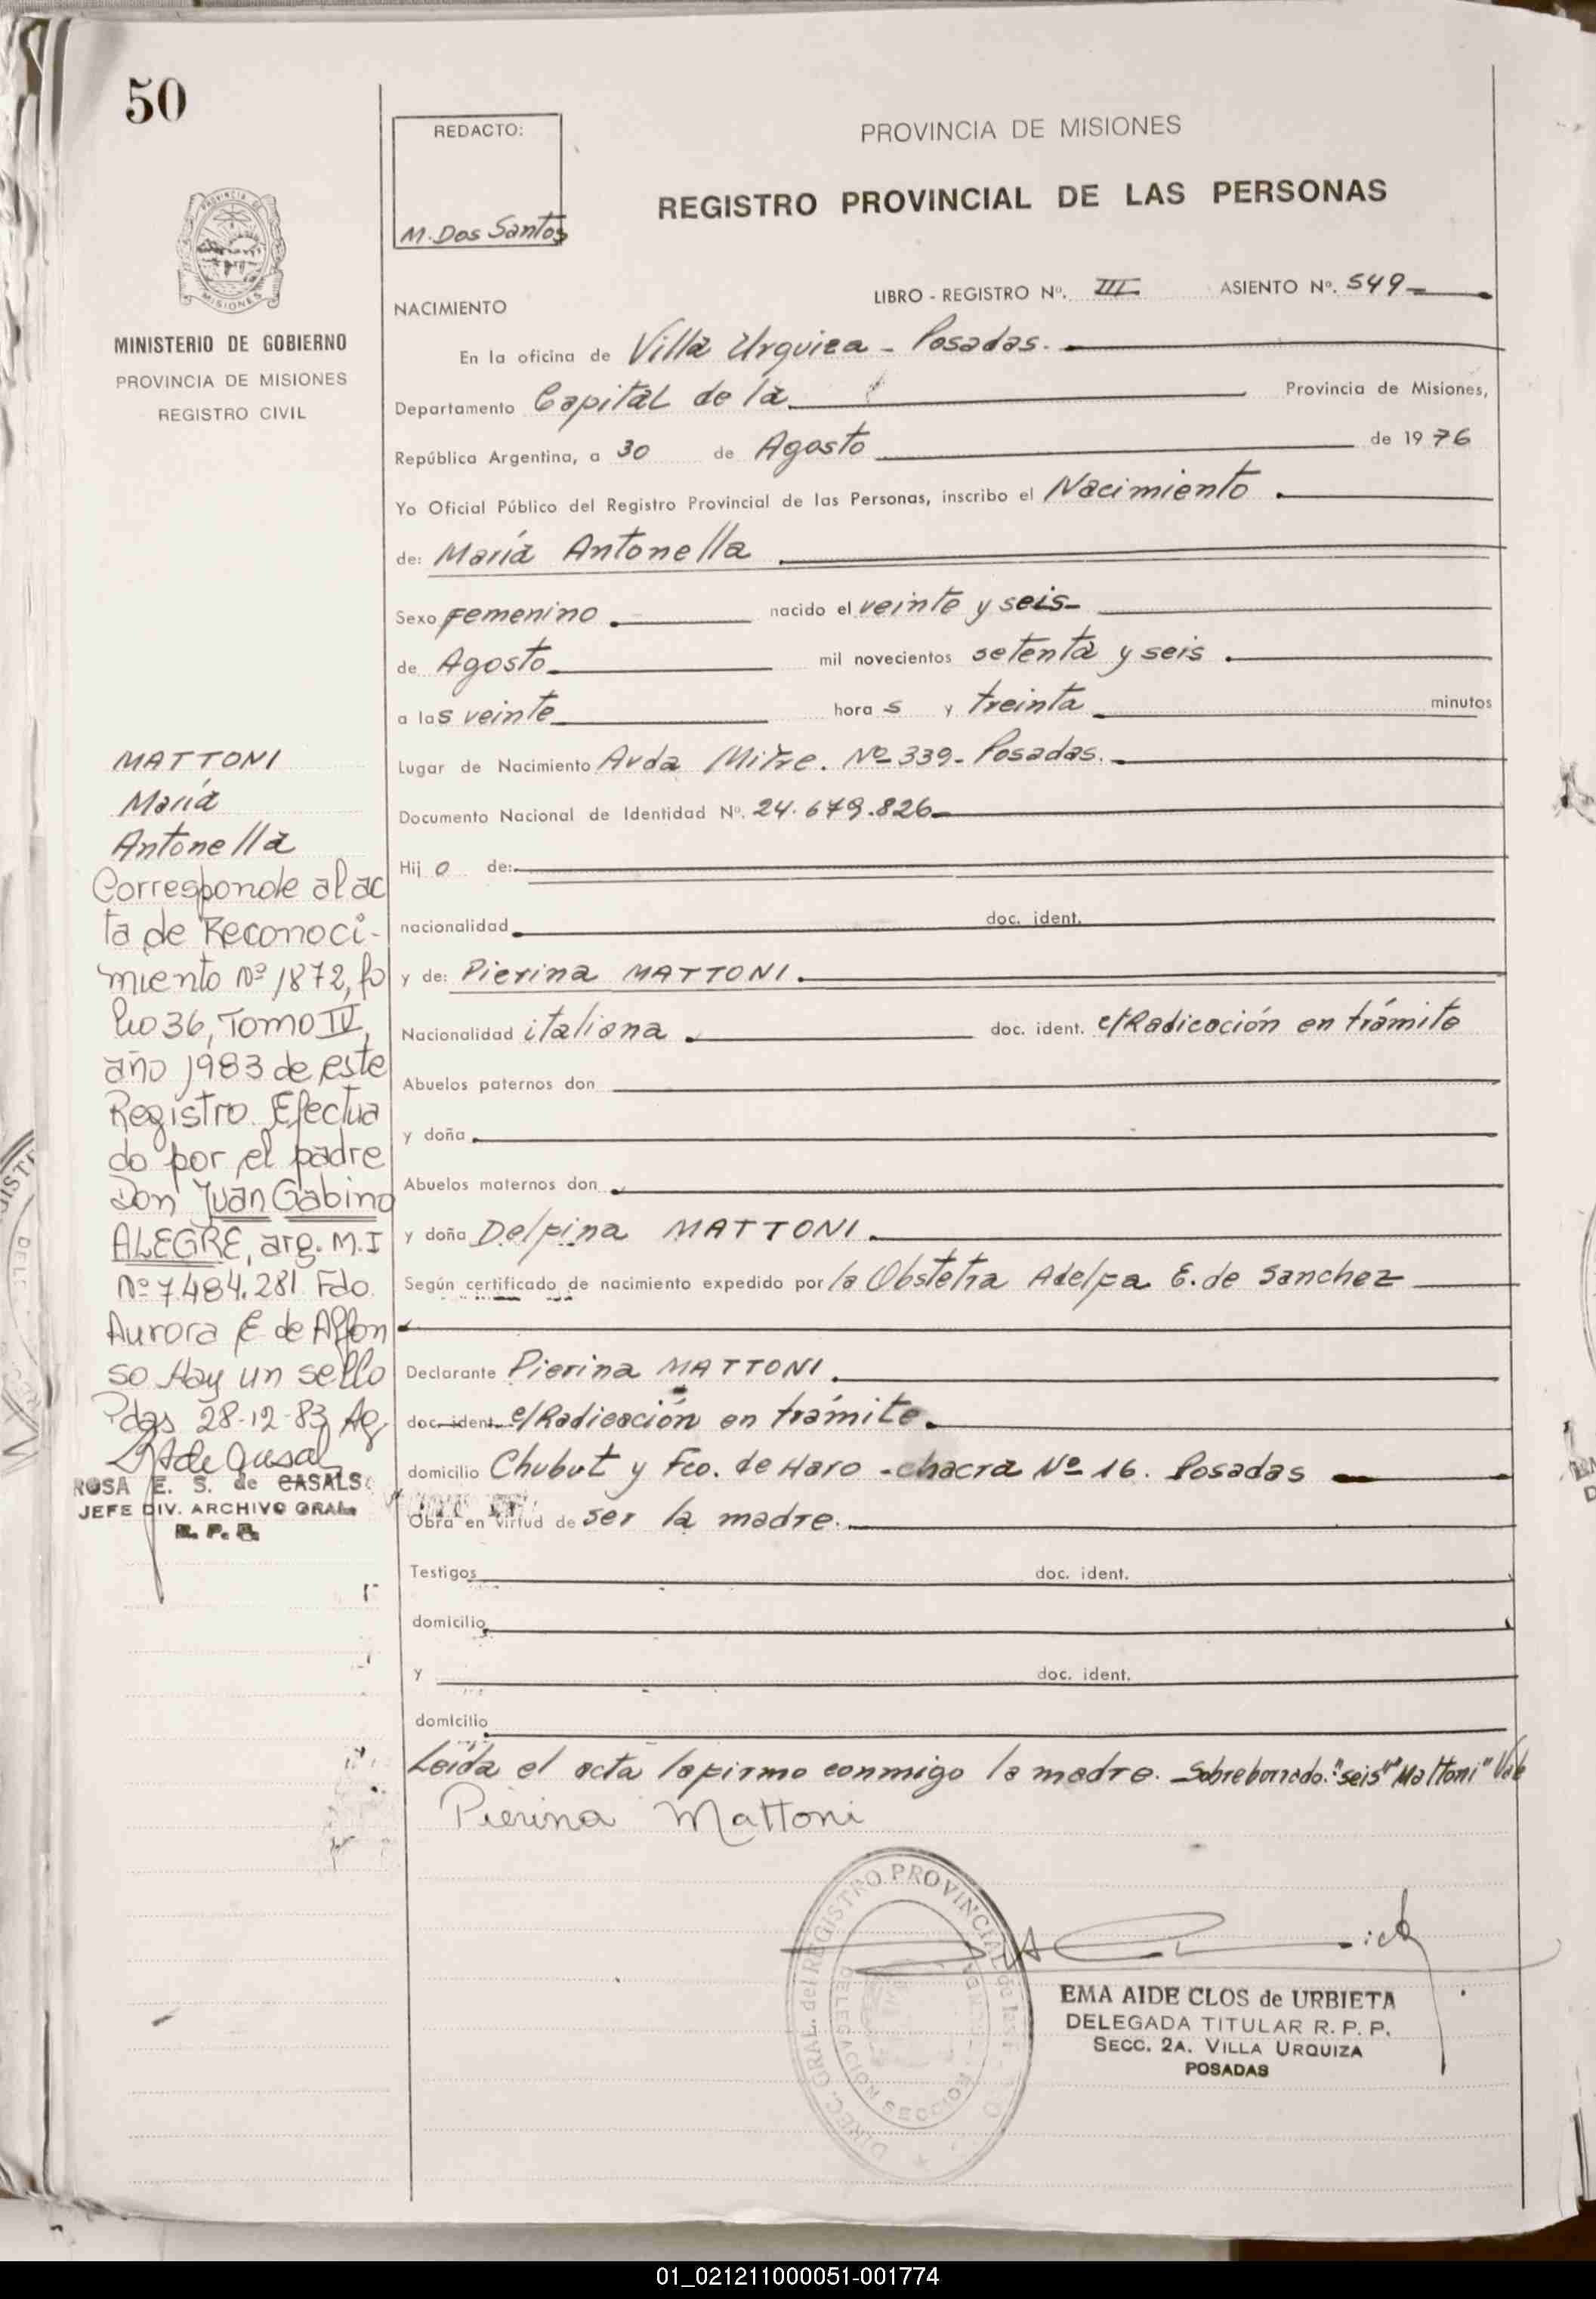 50
REDACTO:
M. Dos Santos
PROVINCIA DE MISIONES
REGISTRO PROVINCIAL DE LAS PERSONAS
PROVINCIA DE
MISIONES
MINISTERIO DE GOBIERNO
PROVINCIA DE MISIONES
REGISTRO CIVIL
NACIMIENTO
LIBRO - REGISTRO Nº. III ASIENTO Nº. 549
En la oficina de Villa Urquiza - Posadas.
Departamento Capital de la Provincia de Misiones,
República Argentina, a 30 de Agosto de 1976
Yo Oficial Público del Registro Provincial de las Personas, inscribo el Nacimiento
de: María Antonella
Sexo Femenino nacido el veinte y seis
de Agosto mil novecientos setenta y seis
a las veinte horas y treinta minutos
Lugar de Nacimiento Avda Mitre. Nº 339 - Posadas.
Documento Nacional de Identidad Nº. 24.679.826
Hijo de:
nacionalidad doc. ident.
y de: Pierina MATTONI.
Nacionalidad italiana doc. ident. c/Radicación en trámite
Abuelos paternos don
y doña
Abuelos maternos don
y doña Delfina MATTONI.
Según certificado de nacimiento expedido por la Obstetra Adelfa E. de Sanchez
Declarante Pierina MATTONI.
doc. ident. c/Radicación en trámite.
domicilio Chubut y Fco. de Haro - chacra Nº 16. Posadas
Obra en virtud de ser la madre.
Testigos doc. ident.
domicilio
y doc. ident.
domicilio
Leída el acta la firma conmigo la madre. Sobreborrado: "seis" "Mattoni" Vale
Pierina Mattoni
MATTONI
María
Antonella
Corresponde al ac
ta de Reconoci-
miento Nº 1872, fo
lio 36, Tomo IV,
año 1983 de este
Registro. Efectua
do por el padre
Don Juan Gabino
ALEGRE, arg. M.I
Nº 7.484.281. Fdo.
Aurora E. de Alfon
so Hay un sello
Pdas 28-12-83
ROSA E. S. de CASALS
JEFE DIV. ARCHIVO GRAL.
R. P. P.
DIREC. GRAL. del REGISTRO PROVINCIAL de las
DELEGACION SECCION
EMA AIDE CLOS de URBIETA
DELEGADA TITULAR R. P. P.
SECC. 2A. VILLA URQUIZA
POSADAS
01_021211000051-001774